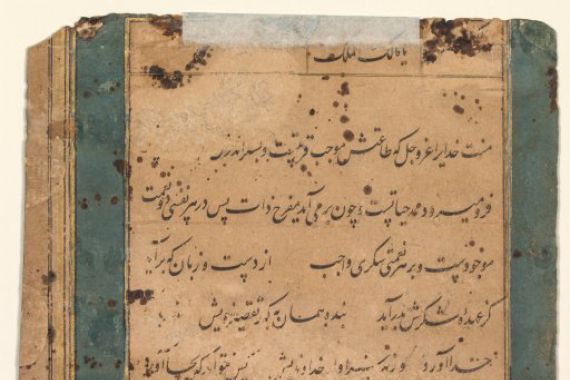 یا مالک الملک
منت خدایرا عز و جل که طاعتش موجب قربتست و
فرو میرود ممد حیاتست و چون بر می آید مفرح ذات پس در هر نفسی دو نعمت
موجودست و بر هر نعمتی شکری واجب از دست و زبان که برآید
کز عهده شکرش بدرآید بنده همان به که ز تقصیر خویش
خدا آورد ورنه سزاوار خداوندیش کس نتواند که بجا آورد